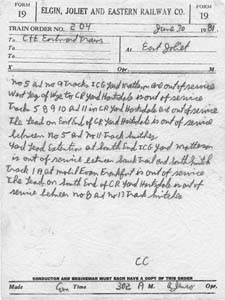 FORM 19
ELGIN, JOLIET AND EASTERN RAILWAY CO.
FORM 19
TRAIN ORDER NO. 204
June 30 1981
To C+E Eastward Trains
To
At East Joliet
X
Opr.
M.
No 5 and no 9 Tracks ICG Yard Matteson are out of service
West Leg of Wye to CR Yard Hartsdale is out of service
Track 5 8 9 10 and 11 in CR Yard Hartsdale are out of service
The Lead on East End of CR Yard Hartsdale is out of service
between No 5 and No 11 Track Switches
Yard Lead Extension at South End ICG Yard Matteson
is out of service between Sauk Trail and South Switch
Track 1 at Frankfort is out of service
The Lead on South End of CR Yard Hartsdale is out of
service between No 8 and No 13 Track Switches
CC
CONDUCTOR AND ENGINEMAN MUST EACH HAVE A COPY OF THIS ORDER
Made Com Time 302 A M.
Opr.